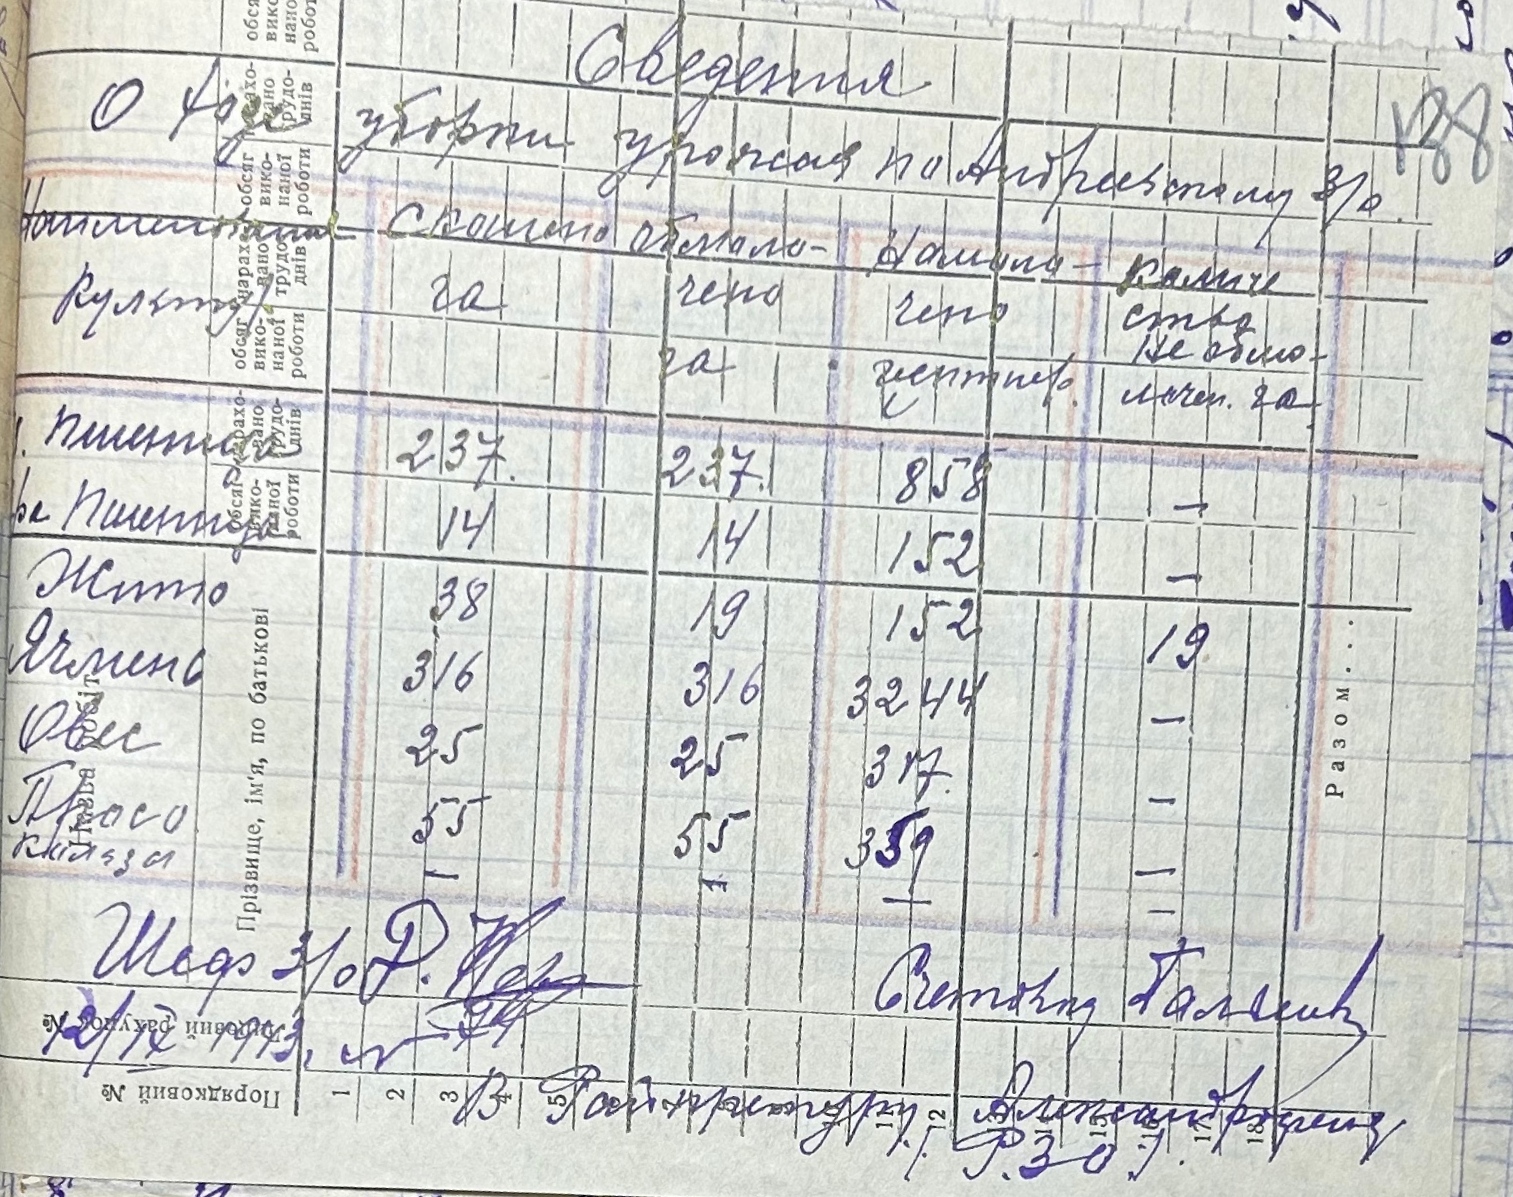 Сведения
О ходе уборки урожая по Андреевскому з/о.
188
Наименование Скошено обмоло- Намоло- Количе
культур га чено чено ство
га центнер. Не обмо-
лочен. га
Пшеница 237. 237. 858 —
Пшеница 14 14 152 —
Жито 38 19 152 19
Ячмень 316 316 3244 —
Овес 25 25 317 —
Просо 55 55 359 —
— — — —
Шеф з/о Р.
Счетовод
12/IX 1943.
В Райуправу Александр
Р.З.О.
обсяг виконаної роботи
нараховано трудоднів
обсяг виконаної роботи
нараховано трудоднів
обсяг виконаної роботи
нараховано трудоднів
обсяг виконаної роботи
Назва робіт
Прізвище, ім'я, по батькові
Разом...
Особовий рахунок №
Порядковий № 1 2 3 4 5 11 12 13 14 15 16 17 18